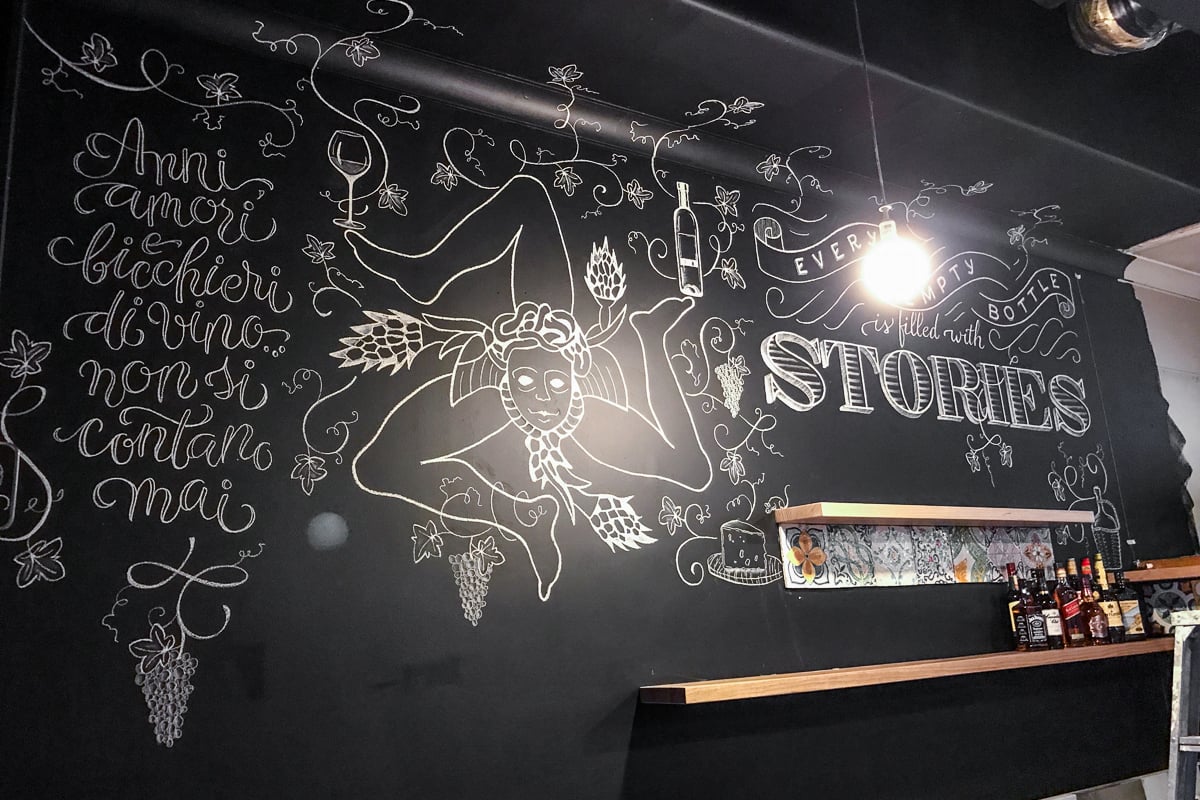 Anni
amori
e
bicchieri
di vino...
non si
contano
mai
EVERY
EMPTY
BOTTLE
is filled with
STORIES